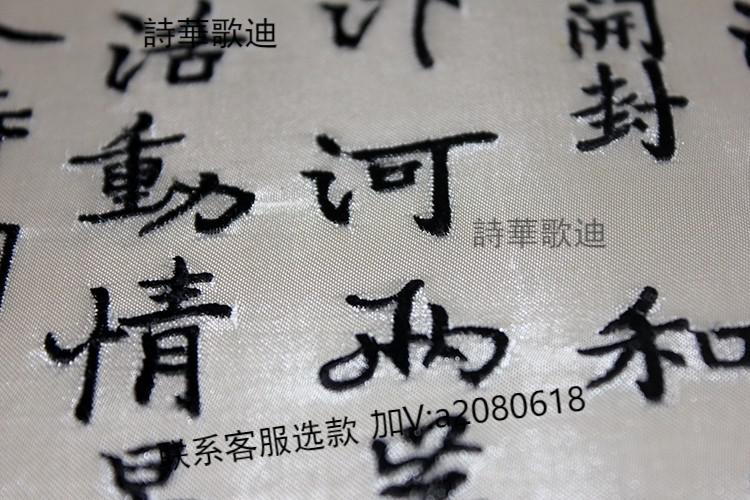 開封和
汴河兩岸
活動情景
詩華歌迪
詩華歌迪
联系客服选款 加V:a2080618